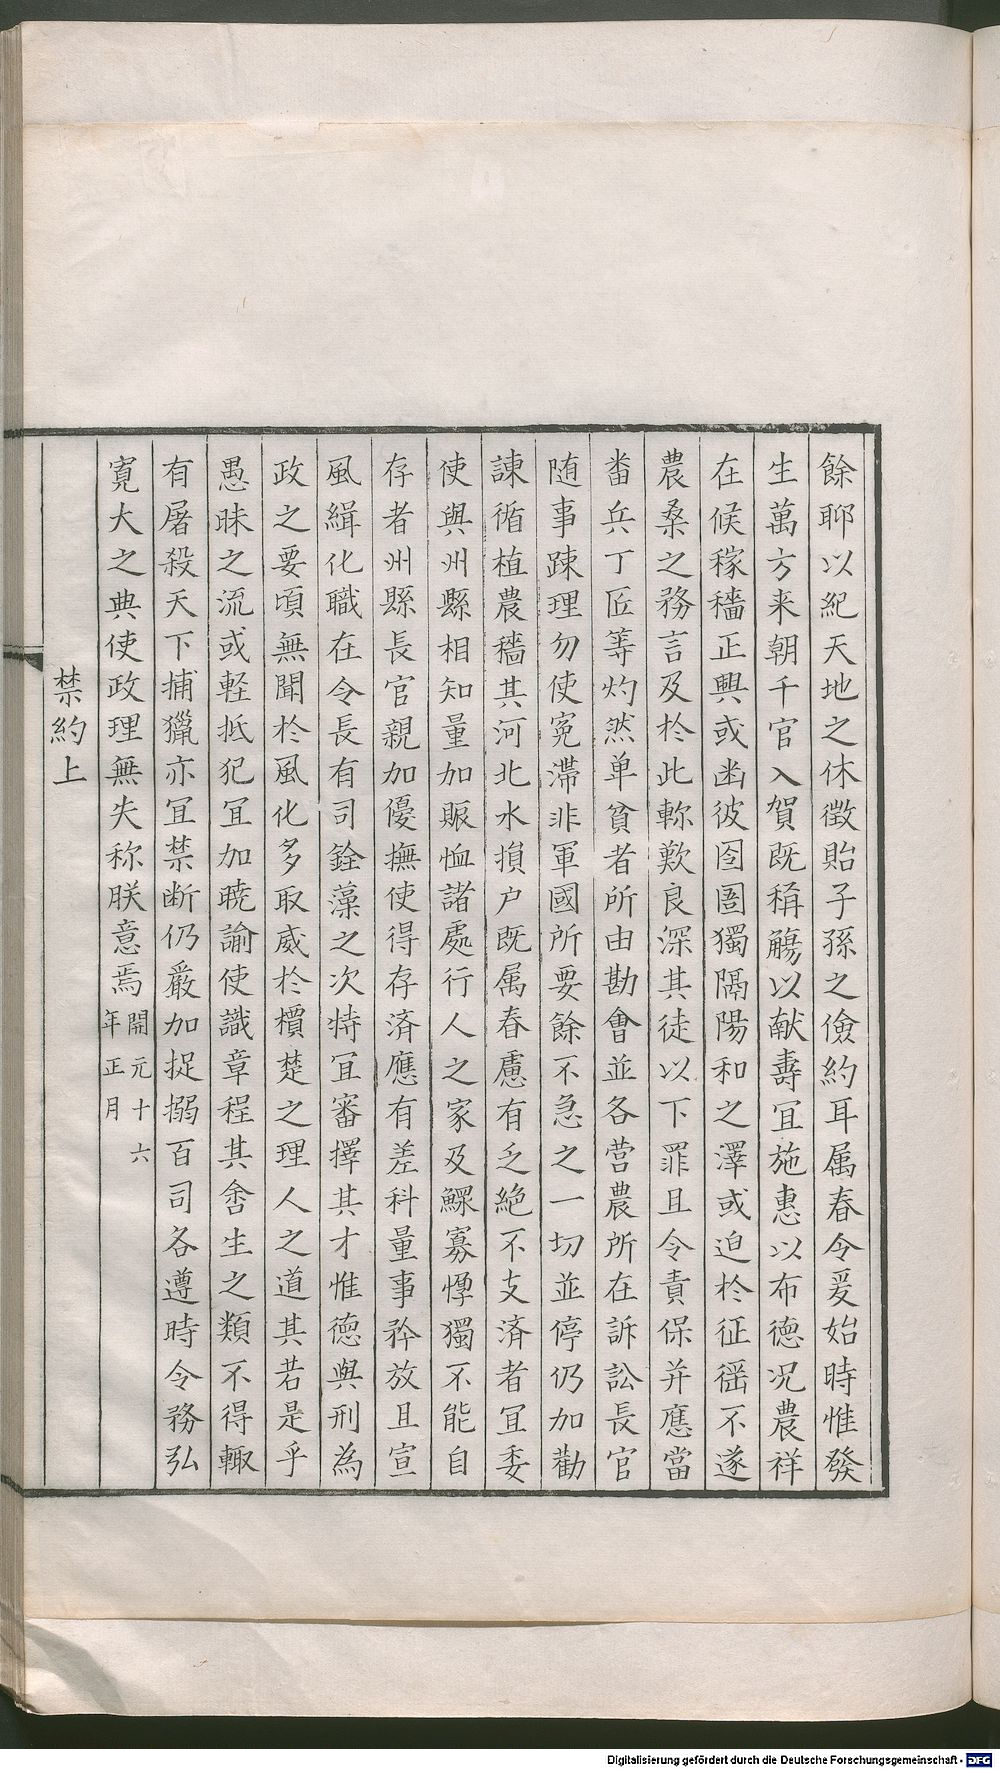 餘耶以紀天地之休徴貽子孫之儉約耳属春令爰始時惟發
生萬方来朝千官入賀既稱觴以献壽宜施惠以布徳况農祥
在候稼穡正興或幽彼囹圄獨隔陽和之澤或迫扵征徭不遂
農桑之務言及扵此軫歎良深其徒以下罪且令責保并應當
畨兵丁匠等灼然単貧者所由勘會並各营農所在訴訟長官
随事踈理勿使寃滯非軍國所要餘不急之一切並停仍加勸
諌循植農穡其河北水損户既属春慮有乏絶不支済者冝委
使與州縣相知量加賑恤諸處行人之家及鰥寡惸獨不能自
存者州縣長官親加優撫使得存済應有差科量事矜放且宣
風緝化職在令長有司銓藻之次特冝審擇其才惟徳與刑為
政之要頃無聞扵風化多取威扵檟楚之理人之道其若是乎
愚昧之流或軽抵犯冝加暁諭使識章程其含生之類不得輙
有屠殺天下捕獵亦冝禁断仍嚴加捉搦百司各遵時令務弘
寛大之典使政理無失称朕意焉開元十六
年正月
禁約上
Digitalisierung gefördert durch die Deutsche Forschungsgemeinschaft - DFG